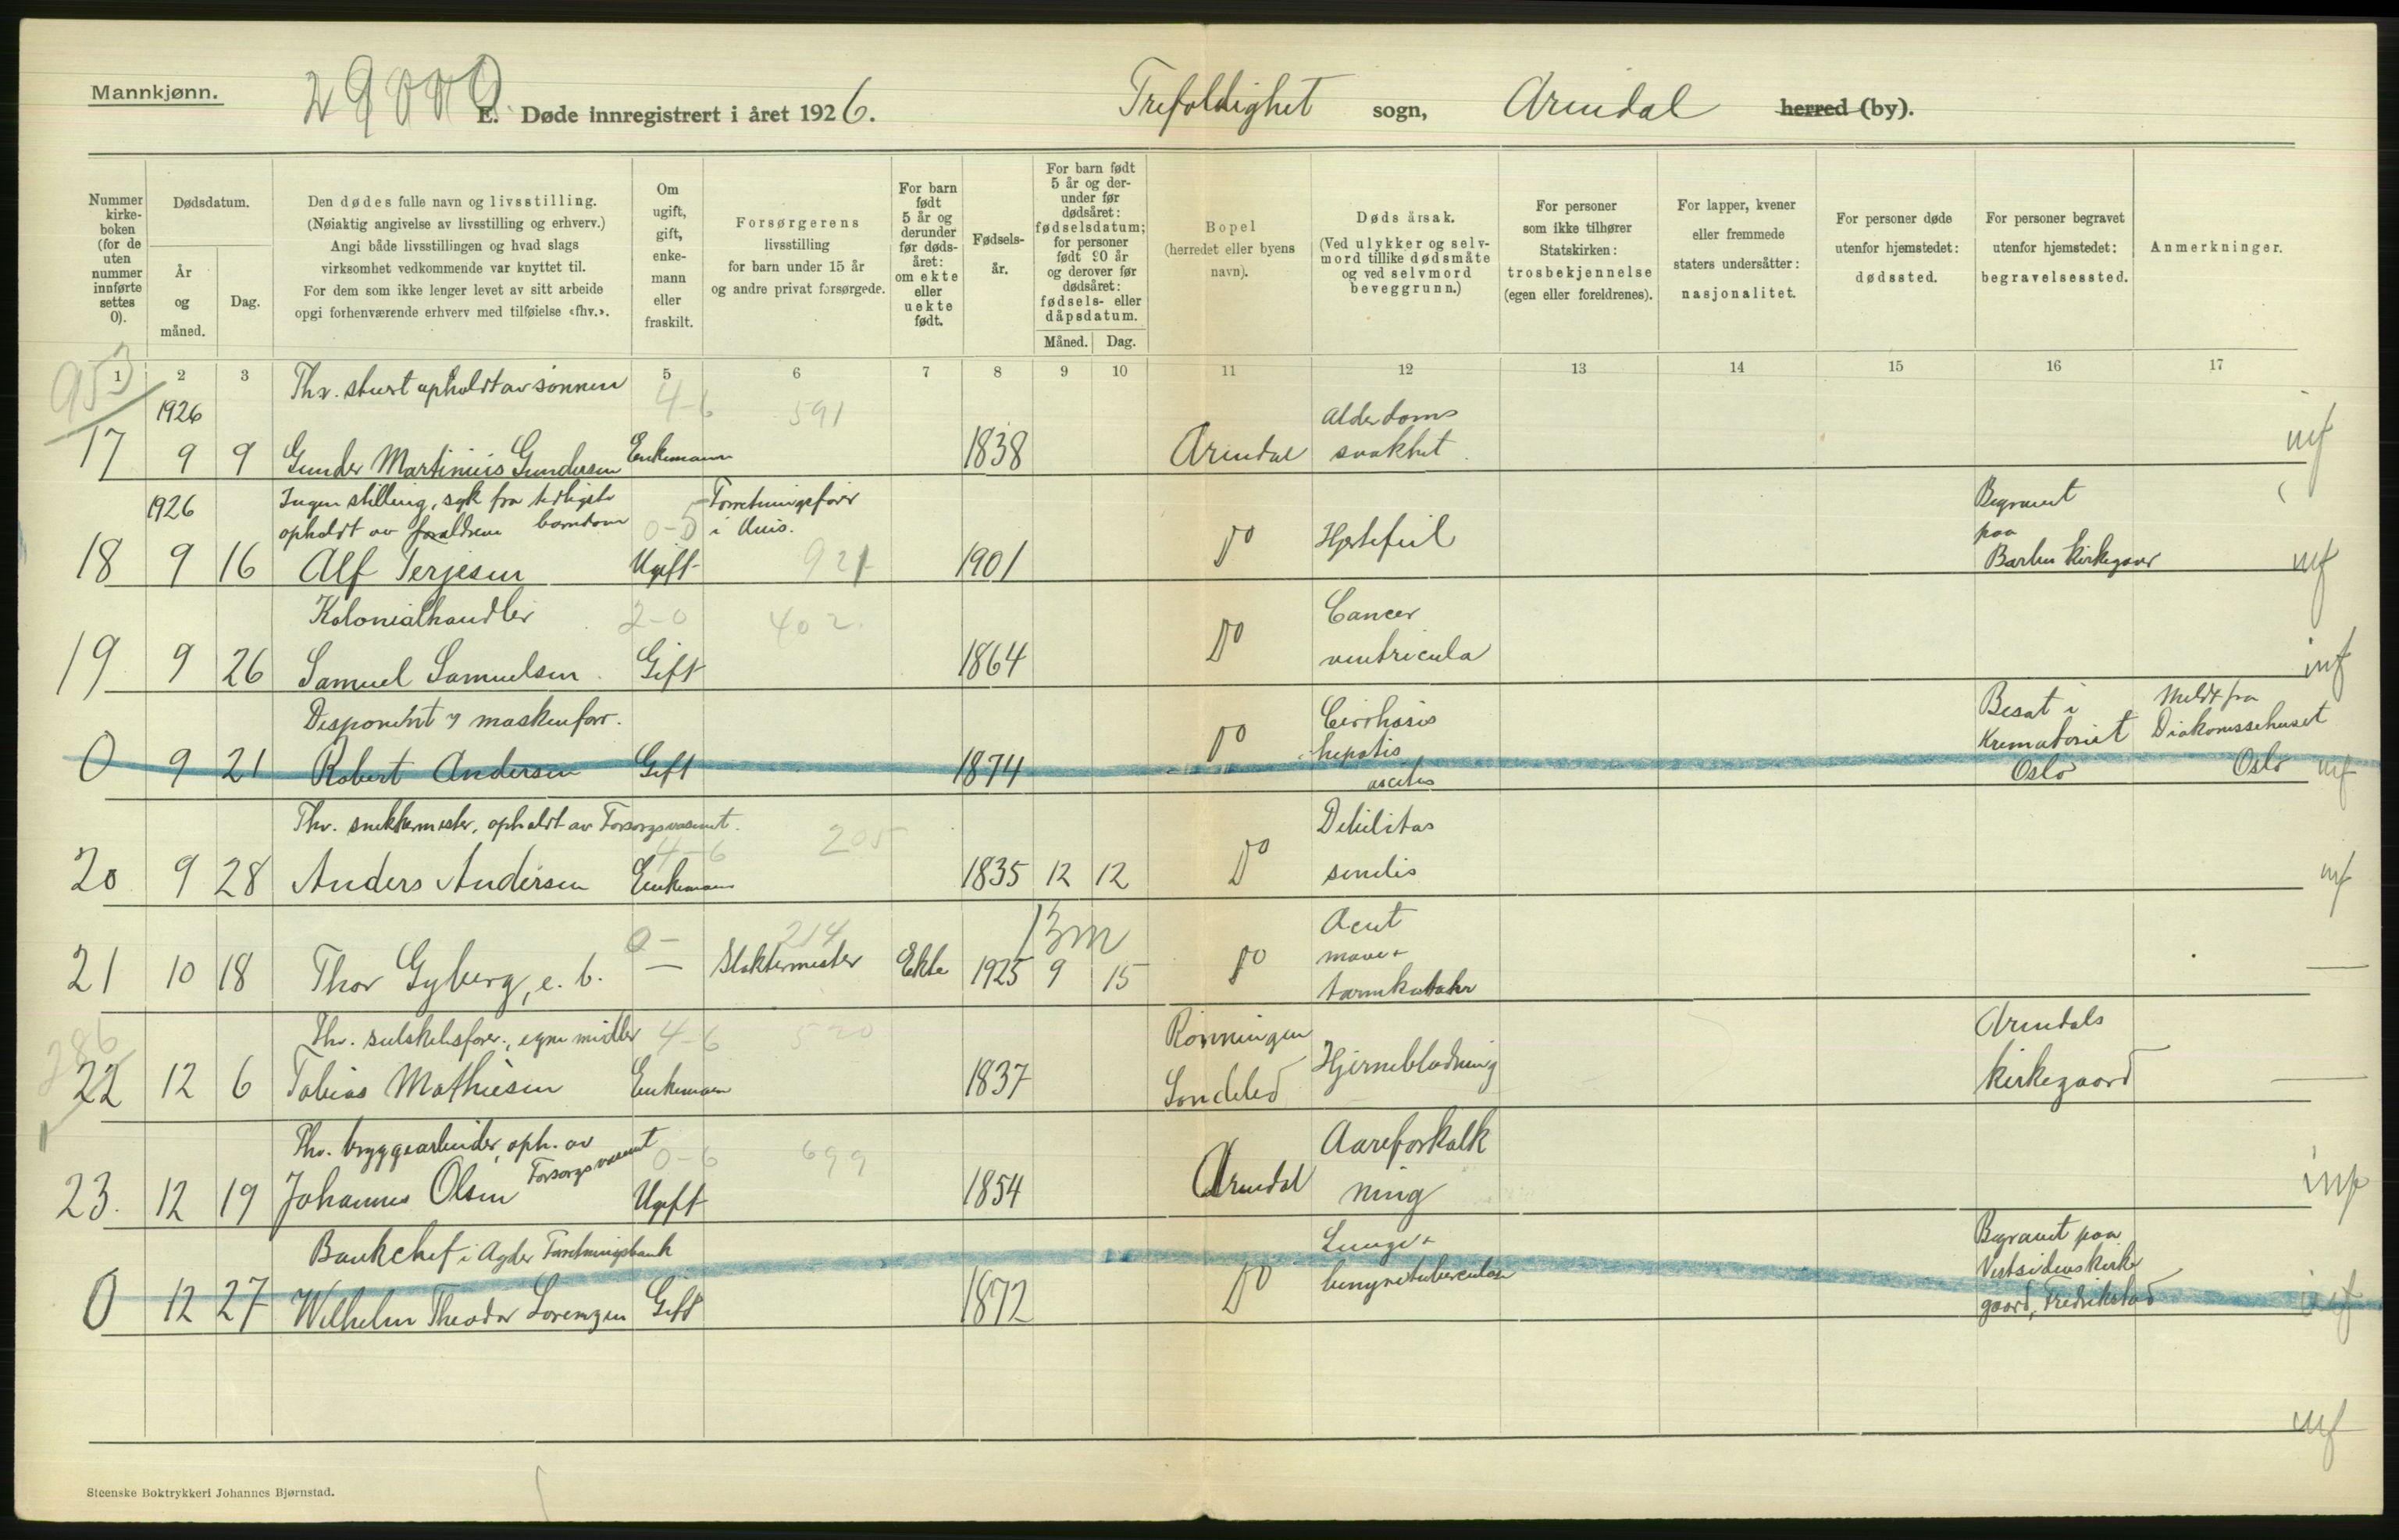 Mannkjønn.
29000
E. Døde innregistrert i året 1926.
Trefoldighet sogn, Arendal herred (by).
Nummer kirke-boken (for de uten nummer innførte settes 0).
Dødsdatum.
År og måned.
Dag.
Den dødes fulle navn og livsstilling.
(Nøiaktig angivelse av livsstilling og erhverv.)
Angi både livsstillingen og hvad slags
virksomhet vedkommende var knyttet til.
For dem som ikke lenger levet av sitt arbeide
opgi forhenværende erhverv med tilføielse «fhv.».
Om ugift, gift, enke-mann eller fraskilt.
Forsørgerens livsstilling
for barn under 15 år
og andre privat forsørgede.
For barn født 5 år og derunder før døds-året: om ekte eller uekte født.
Fødsels-år.
For barn født 5 år og der-under før dødsåret: fødselsdatum; for personer født 90 år og derover før dødsåret: fødsels- eller dåpsdatum.
Måned.
Dag.
Bopel
(herredet eller byens navn).
Dødsårsak.
(Ved ulykker og selv-mord tillike dødsmåte og ved selvmord beveggrunn.)
For personer som ikke tilhører Statskirken: trosbekjennelse (egen eller foreldrenes).
For lapper, kvener eller fremmede staters undersåtter: nasjonalitet.
For personer døde utenfor hjemstedet: dødssted.
For personer begravet utenfor hjemstedet: begravelsessted.
Anmerkninger.
1 2 3 5 6 7 8 9 10 11 12 13 14 15 16 17
953
Fhv. stuert opholdt av sønnen
4-6 591
1926
Alderdoms
17 9 9 Gunder Martinius Gundersen Enkemann 1838 Arendal svakhet
1926 Ingen stilling, syk fra tidligste
opholdt av foreldrene barndom
0-5
Forretningsfører
i Avis.
Begravet
paa
18 9 16 Alf Terjesen Ugift 921 1901 Do Hjertefeil Barbu kirkegaar
Kolonialhandler 2-0 402 Cancer
19 9 26 Samuel Samuelsen Gift 1864 Do ventricula
Disponent & maskinforr. Cirrhosis Besat i Meldt fra
0 9 21 Robert Andersen Gift 1874 Do hepatis Krematoriet Diakonissehuset
ascites Oslo Oslo
Fhv. snekkermester, opholdt av Forsorgsvæsenet.
4-6 205 Debilitas
20 9 28 Anders Andersen Enkemann 1835 12 12 Do senilis
0- 214 13m Acut
21 10 18 Thor Gyberg, e. b. — Slaktermester Ekte 1925 9 15 Do mave+
tarmkatahr
286
Fhv. seilskibsfører, egne midler 4-6 520 Rønningen Arendals
22 12 6 Tobias Mathiesen Enkemann 1837 Søndeled Hjerneblødning kirkegaard
Fhv. bryggearbeider, oph. av
Forsorgsvæsenet
0-6 699 Aareforkalk
23. 12 19 Johannes Olsen Ugift 1854 Arendal ning
Bankchef i Agder Forretningsbank Lunge+ Begravet paa
0 12 27 Wilhelm Theodor Lorentzen Gift 1872 Do Vestsidens kirke
gaard, Fredrikstad
Steenske Boktrykkeri Johannes Bjørnstad.